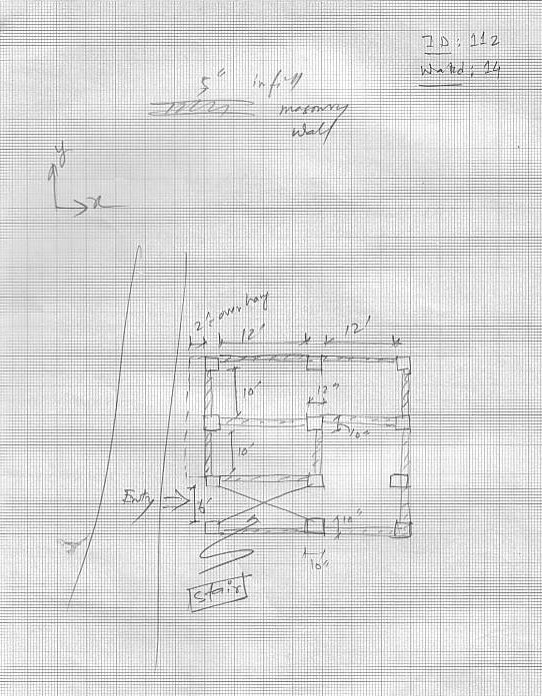 ID: 112
Ward: 14
5" infill
masonry
wall
y
x
2' overhang
12'
12'
10'
12"
10"
10'
Entry
6'
10"
10"
Stair